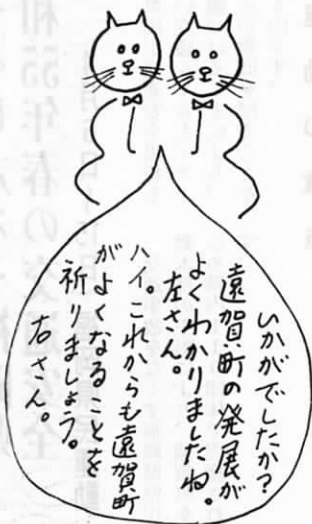 いかがでしたか?
遠賀町の発展が
よくわかりましたね。
左さん。
ハイ。これからも遠賀町
がよくなることを
祈りましょう。
右さん。
和55年春の交通安全